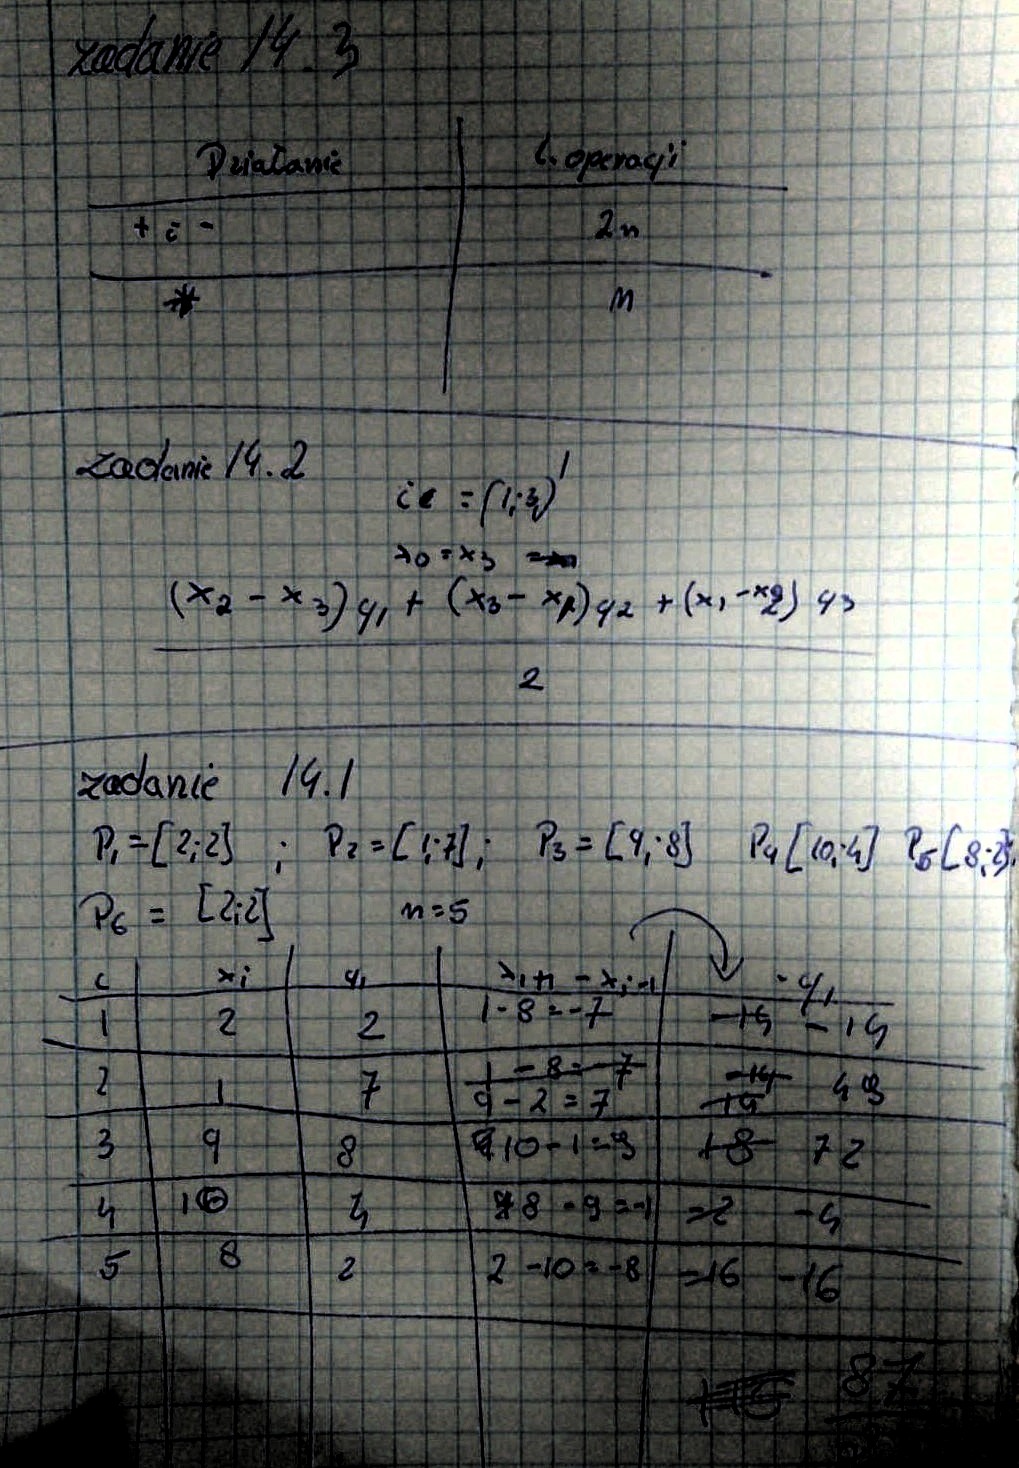 zadanie 14.3
Działanie l. operacji
+ i - 2n
* n
zadanie 14.2
i ∈ = (1;3)
x0 = x3
(x2 - x3) y1 + (x3 - x1) y2 + (x1 - x2) y3
2
zadanie 14.1
P1 = [2;2] ; P2 = [1;7]; P3 = [9;8] P4 [10;4] P5 [8;2];
P6 = [2;2] n=5
i xi yi xi+1 - xi-1 · yi
1 2 2 1-8=-7 -14
2 1 7 9-2=7 49
3 9 8 10-1=9 72
4 10 4 8-9=-1 -4
5 8 2 2-10=-8 -16
87